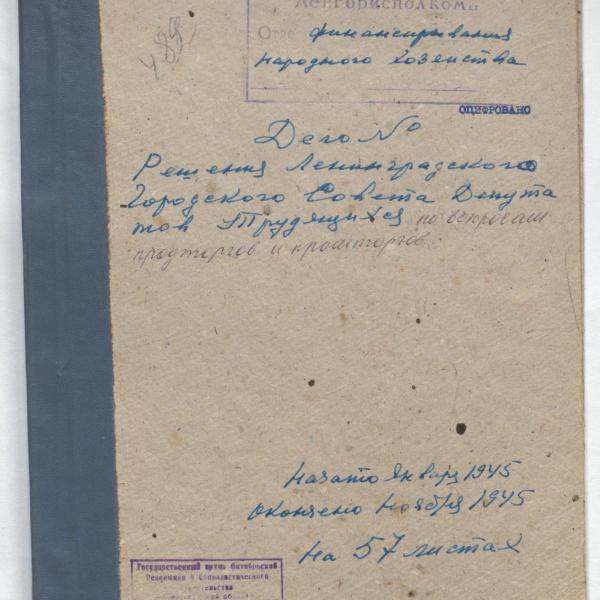 Ленгорисполкома
Отд финансирования
народного хозяйства
488
ОЦИФРОВАНО
Дело №
Решения Ленинградского
Городского Совета Депута
тов Трудящихся по вопросам
продторгов и промторгов.
Начато Январь 1945
Окончено Ноября 1945
На 57 листах
Государственный архив Октябрьской
Революции и Социалистического